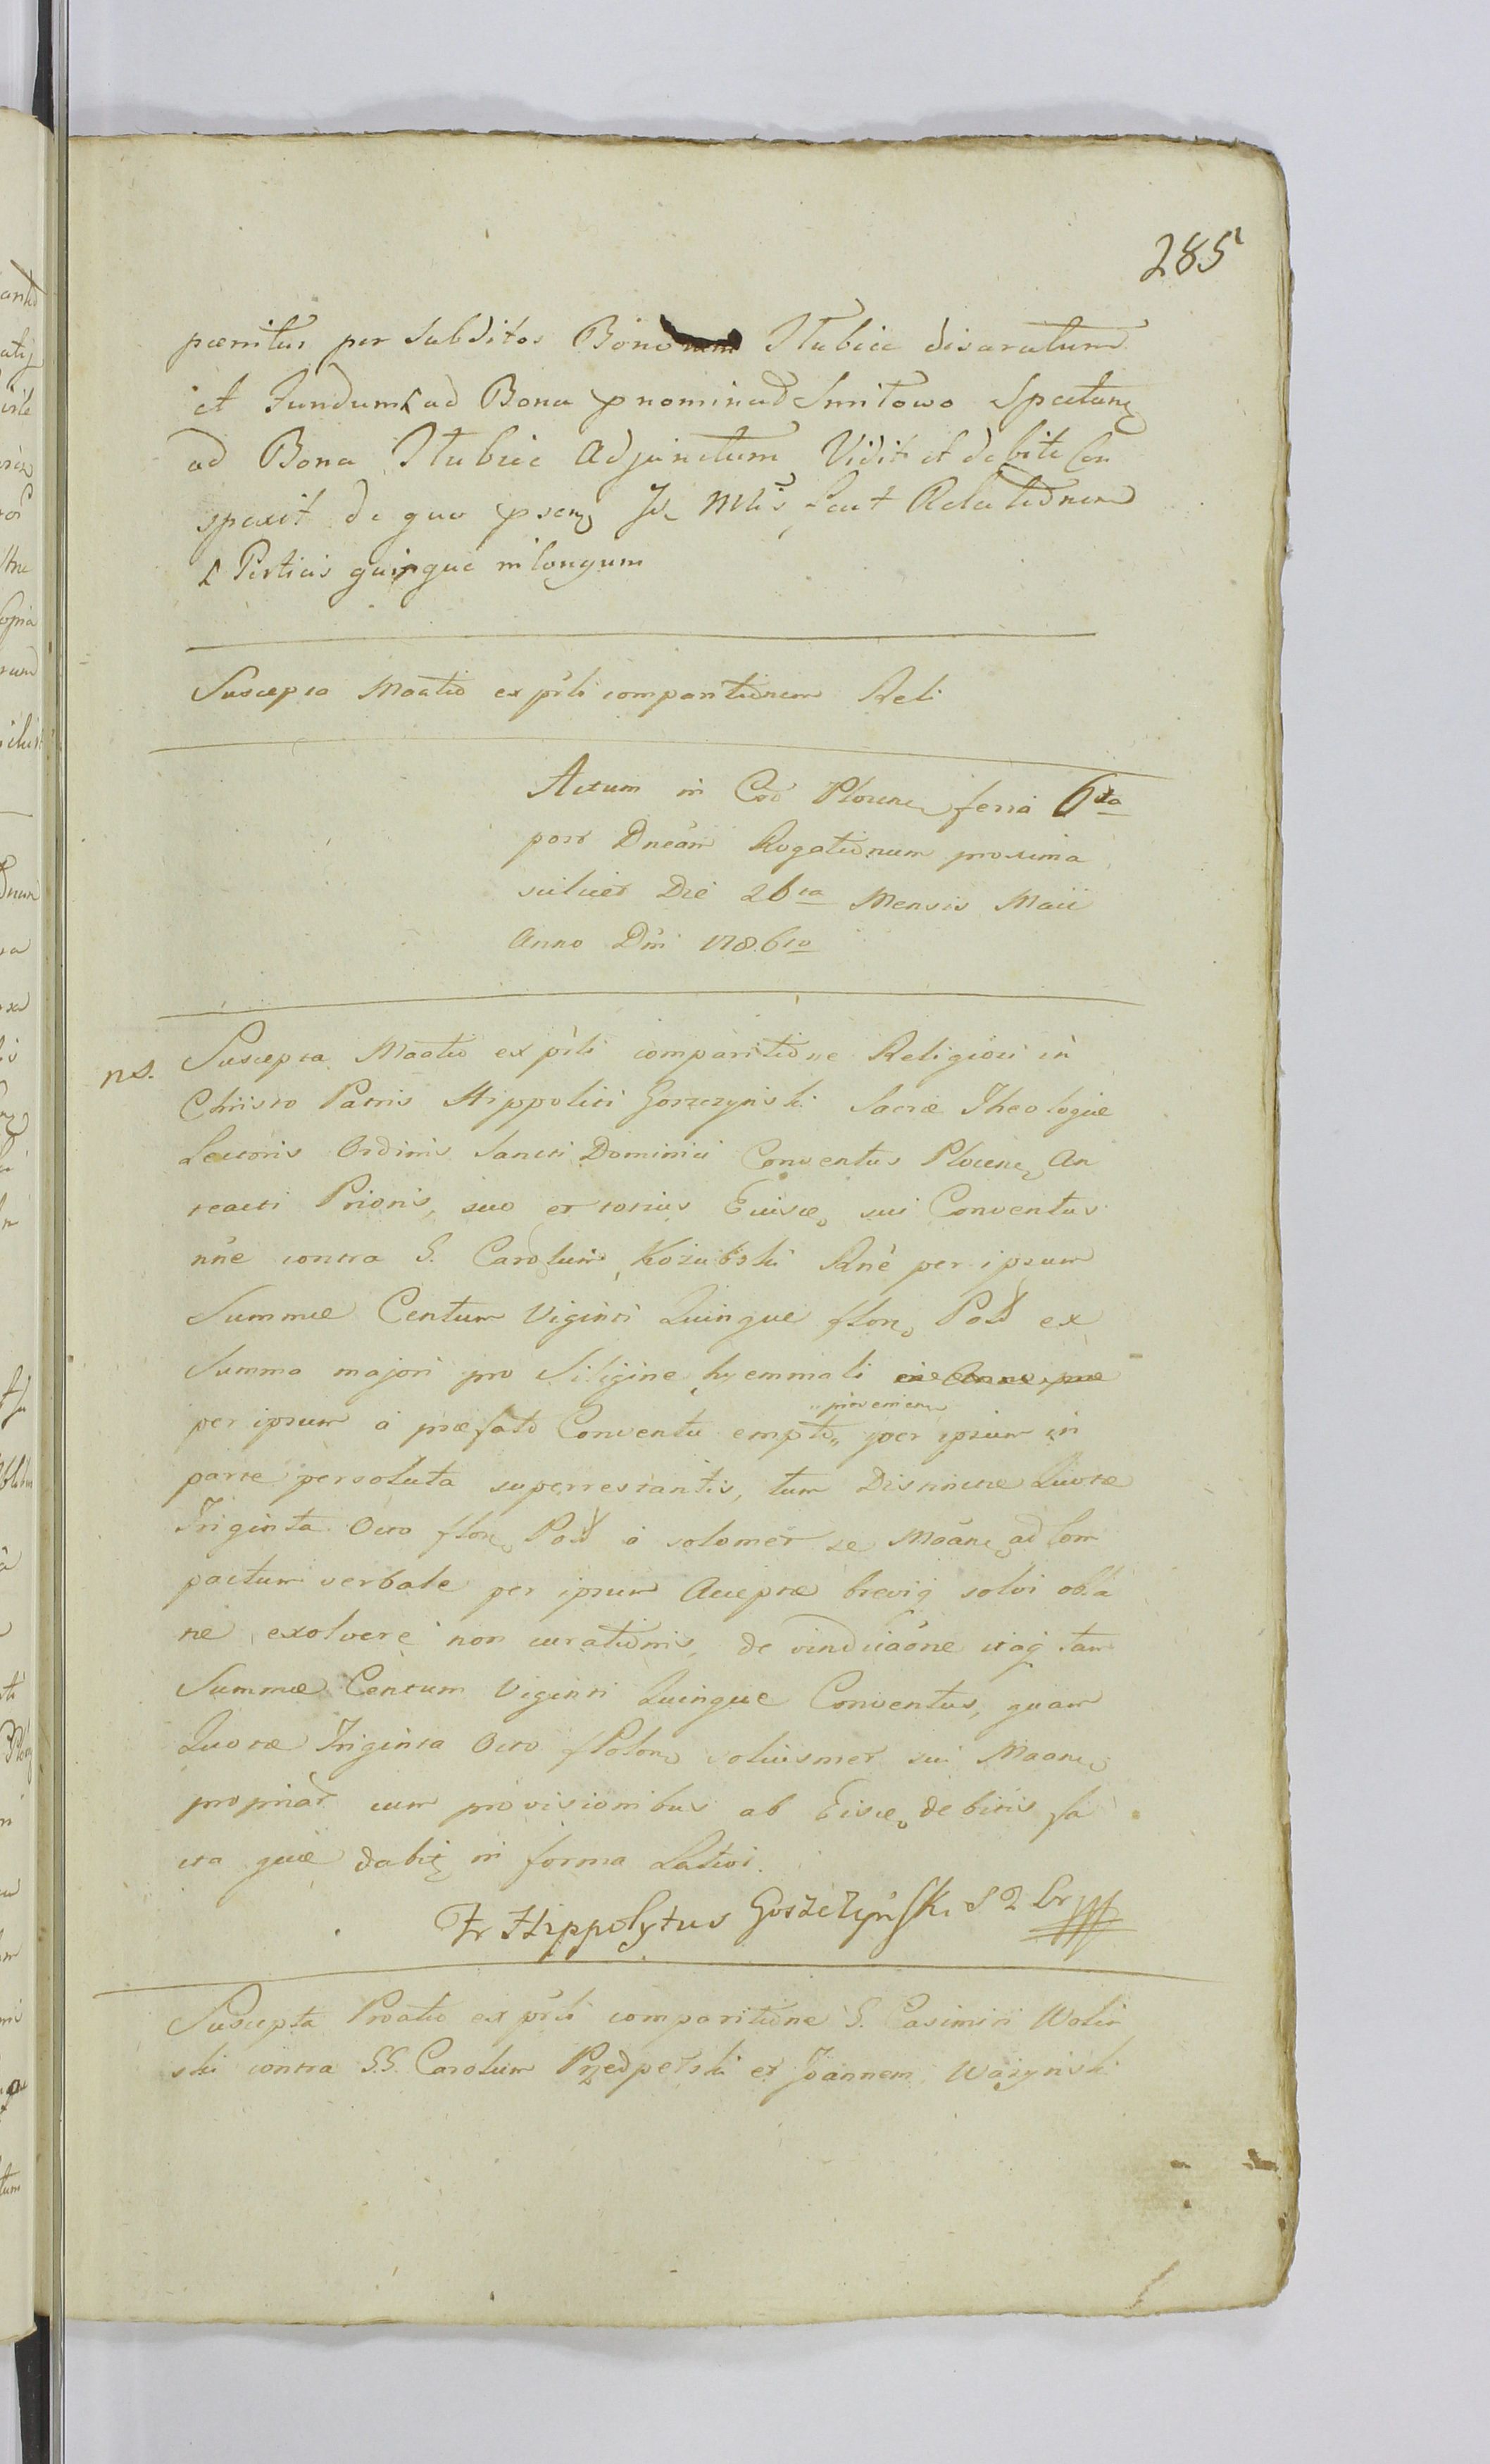 285
pœnitus per subditos Bono Stubice disaratum
et Fundum ad Bona pnominad Smitowo Spectan
ad Bona Stubice Adjunctum Vidit et debite Con
spexit de quo psens Js Mtris fecit Relationem
Perticis quinque in longum
Suscepta Maatio ex prli comparitionem Reli
Actum in Cod Plocen feria 6ta
post Dneam Rogationum proxima
scilicet Die 26ta Mensis Maii
Anno Dni 1786to
ns. Suscepta Maatio ex prli comparitione Religiosi in
Christo Patris Hippoliti Gorzczynski Sacræ Theologiæ
Lectoris Ordinis Sancti Dominici Conventus Plocen An
teacti Prioris, suo et totius Ejusce sui Conventus
nne contra G. Carolum Kozubski Rne per ipsum
Summæ Centum Viginti Quinque flor Pol ex
Summa majori pro Siligine hyemmali
per ipsum a præfato Conventu empto provenien per ipsum in
parte persoluta superrestantis, tum Distincte Quotæ
Triginta Octo flor Pol a solomet se Maane ad Com
pactum verbale per ipsum Acceptæ brevia solvi obla
ne exolvere non curationis, de vindicaone itaq tam
Summæ Centum Viginti Quinque Conventus, quam
Quotæ Triginta Octo f Polon soliusmet sui Maane
propriat cum provisionibus ab Eisce debitis fa
cta quæ dabit in forma Lativi.
Fr Hippolytus Goszczynski S T Lr
Suscepta Proatio ex prli comparitione G. Casimiri Wolin
ski contra G.G. Carolum Przedpełski et Joannem Wazynski